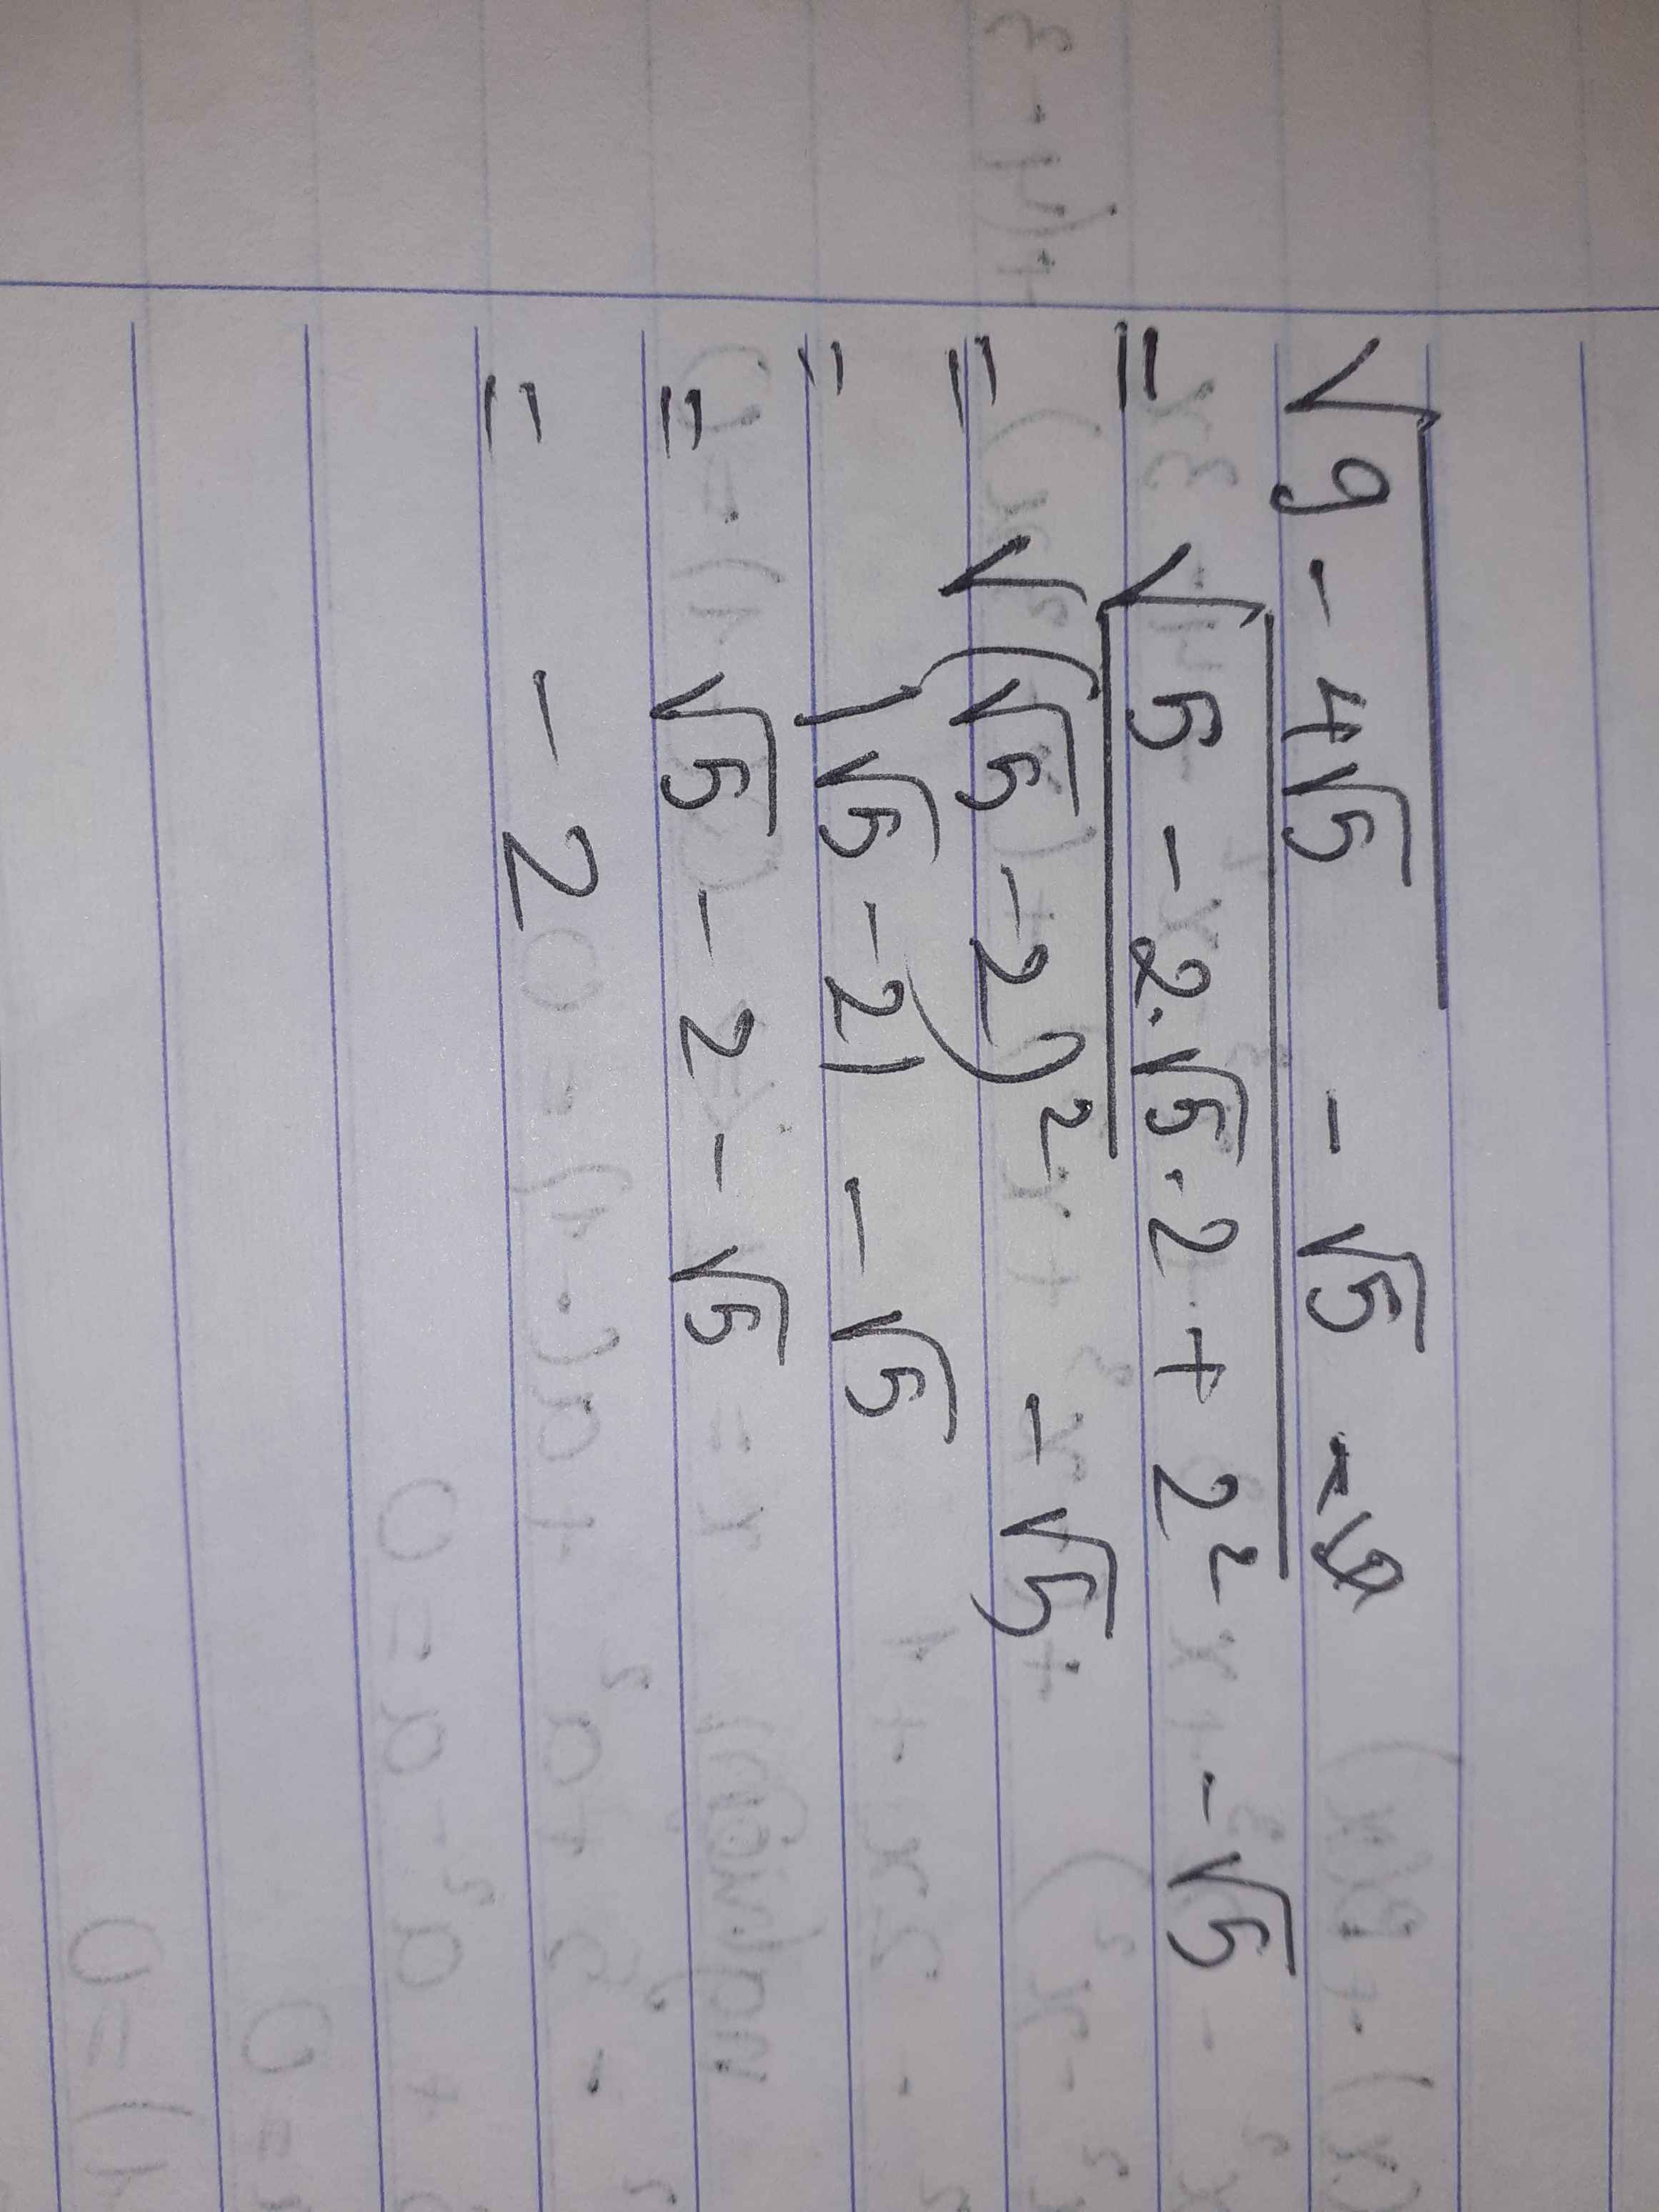 √(9 - 4√5) - √5
= √(5 - 2.√5.2 + 2²) - √5
= √(√5 - 2)² - √5
= |√5 - 2| - √5
= √5 - 2 - √5
= - 2